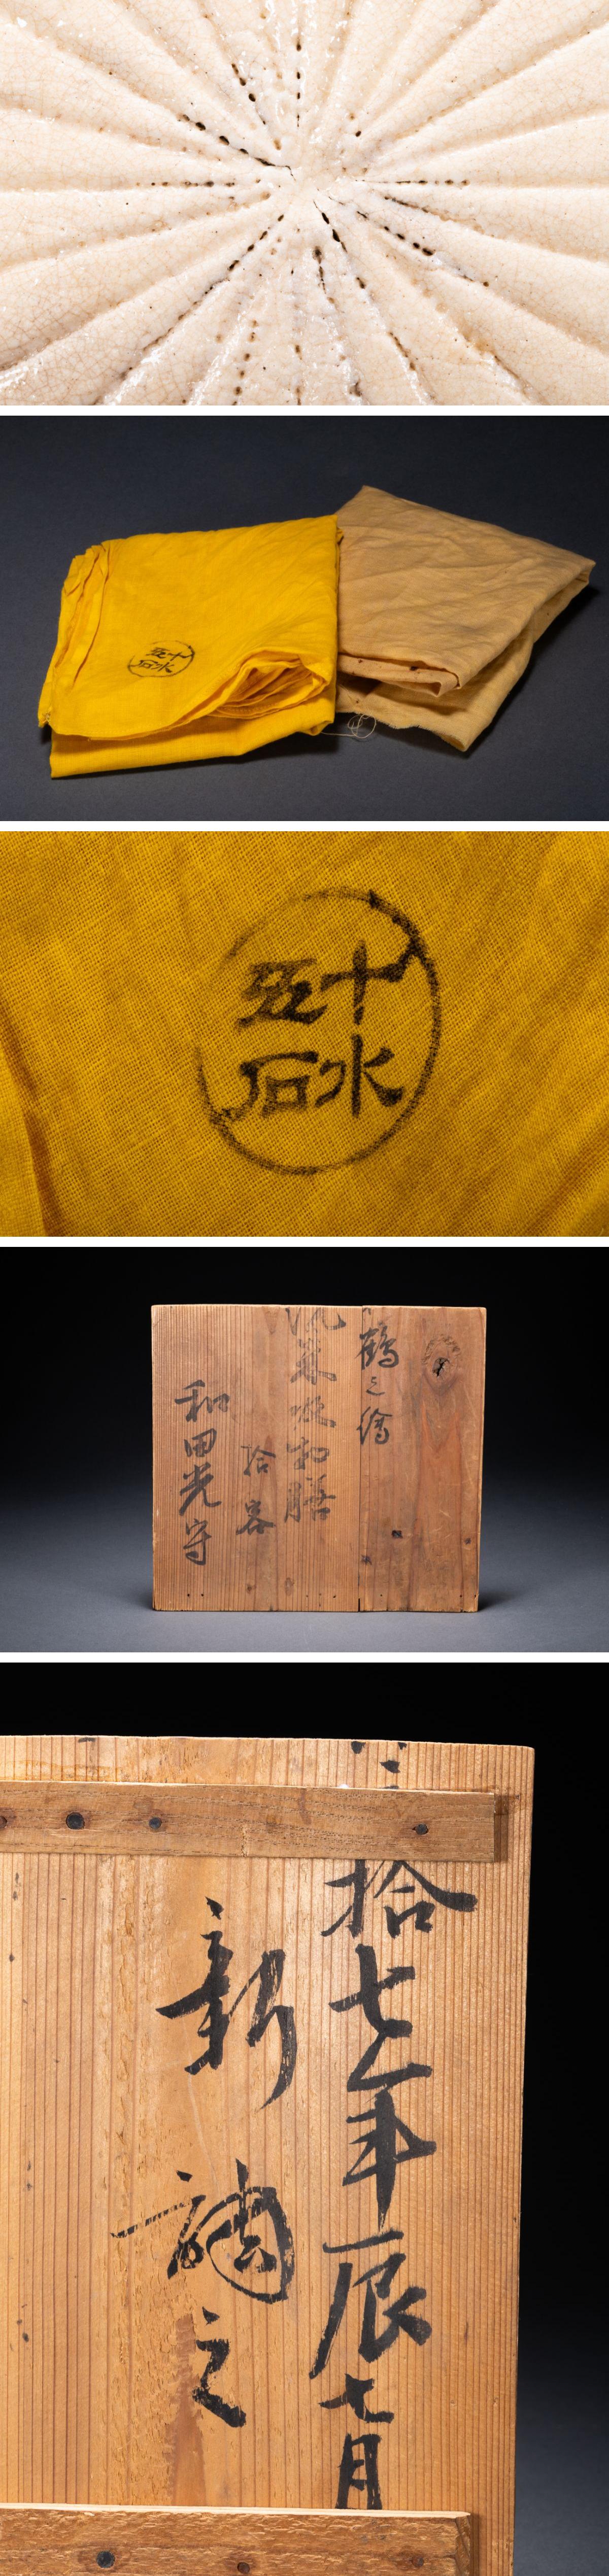 十五
水石
十五
水石
鶴之繪
吸物膳
拾客
和田光守
拾七年辰七月
新調之